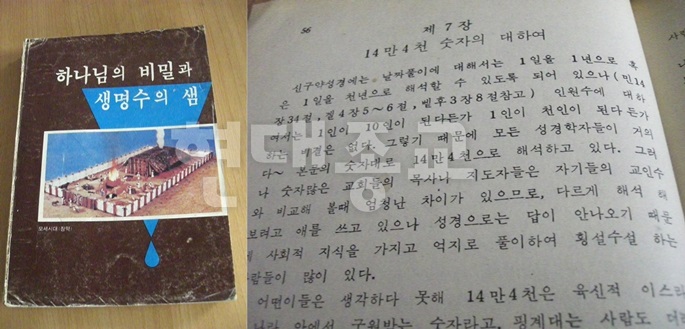 하나님의 비밀과
생명수의 샘
모세시대(장막)
56
제 7 장
14만 4천 숫자의 대하여
신구약성경에는 날짜풀이에 대해서는 1일을 1년으로 혹
은 1일을 천년으로 해석할 수 있도록 되어 있으나 (민14
장34절, 겔4장5~6절, 벧후3장8절참고) 인원수에 대하
여서는 1인이 10인이 된다든가 1인이 천인이 된다든가
하는 해결은 없다. 그렇기 때문에 모든 성경학자들이 거의
다~ 본문의 숫자대로 14만4천으로 해석하고 있다. 그러
나 숫자많은 교회들의 목사나 지도자들은 자기들의 교인수
와 비교해 볼때 엄청난 차이가 있으므로, 다르게 해석 해
보려고 애를 쓰고 있으나 성경으로는 답이 안나오기 때문
에 사회적 지식을 가지고 억지로 풀이하여 횡설수설 하는
사람들이 많이 있다.
어떤이들은 생각하다 못해 14만4천은 육신적 이스라
안에서 구원받는 숫자라고, 핑계대는 사람도 더러
현대종교